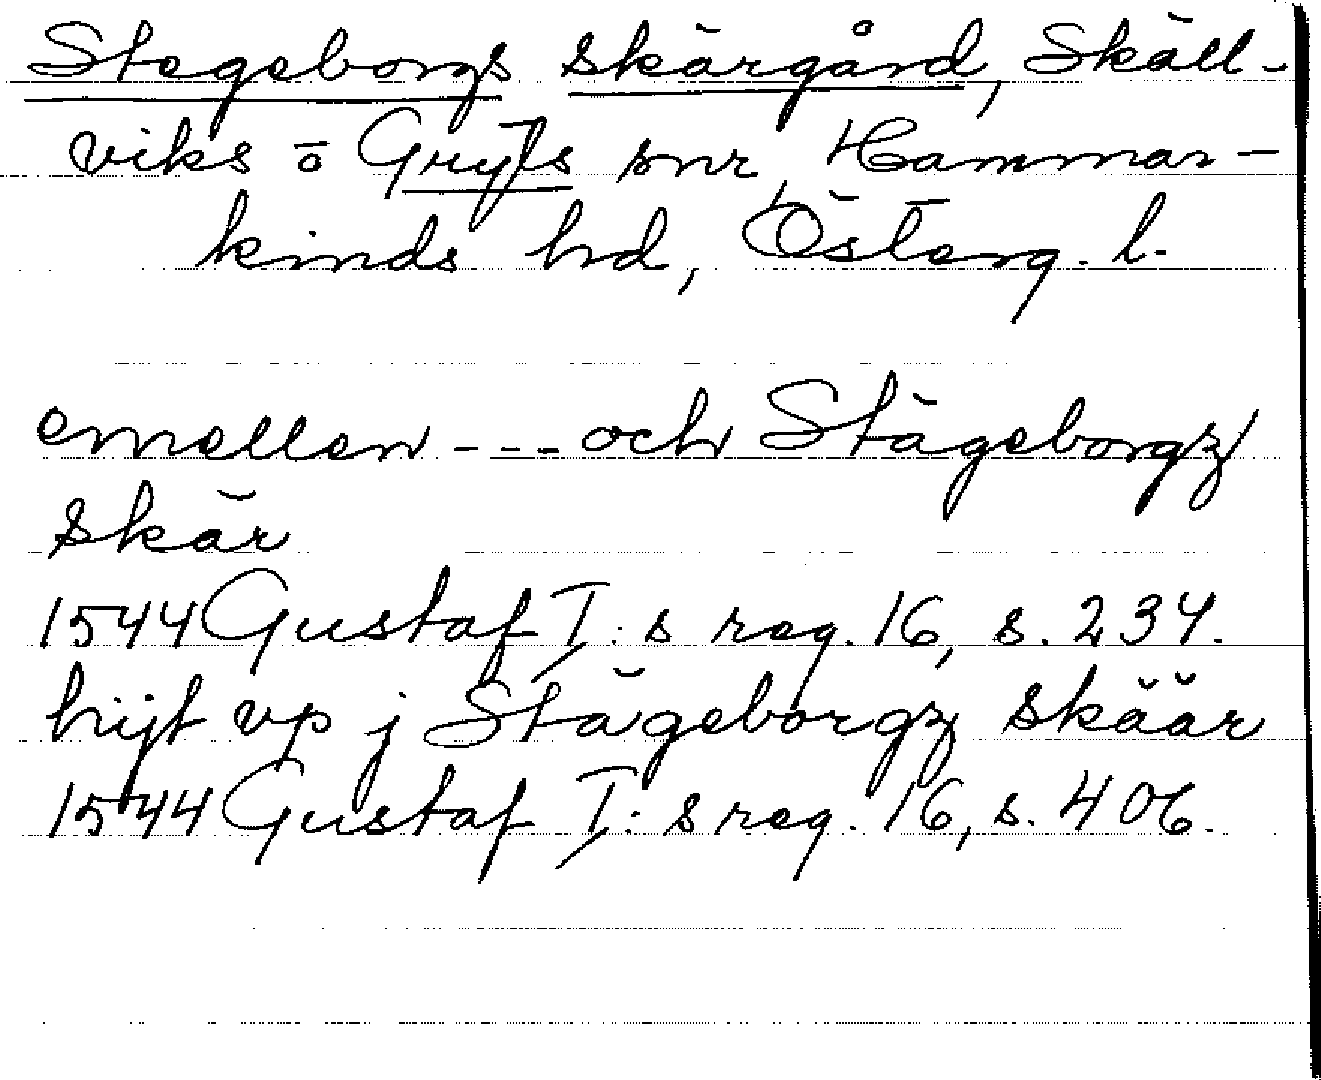 Stegeborgs skärgård, Skäll-
viks o Gryts snr, Hammar-
kinds hd, Österg. l.
emellen --- och Stägeborgz
skär
1544 Gustaf I:s reg. 16, s. 234.
hijt vp j Stägeborgz skäär
1544 Gustaf I:s reg. 16, s. 406.